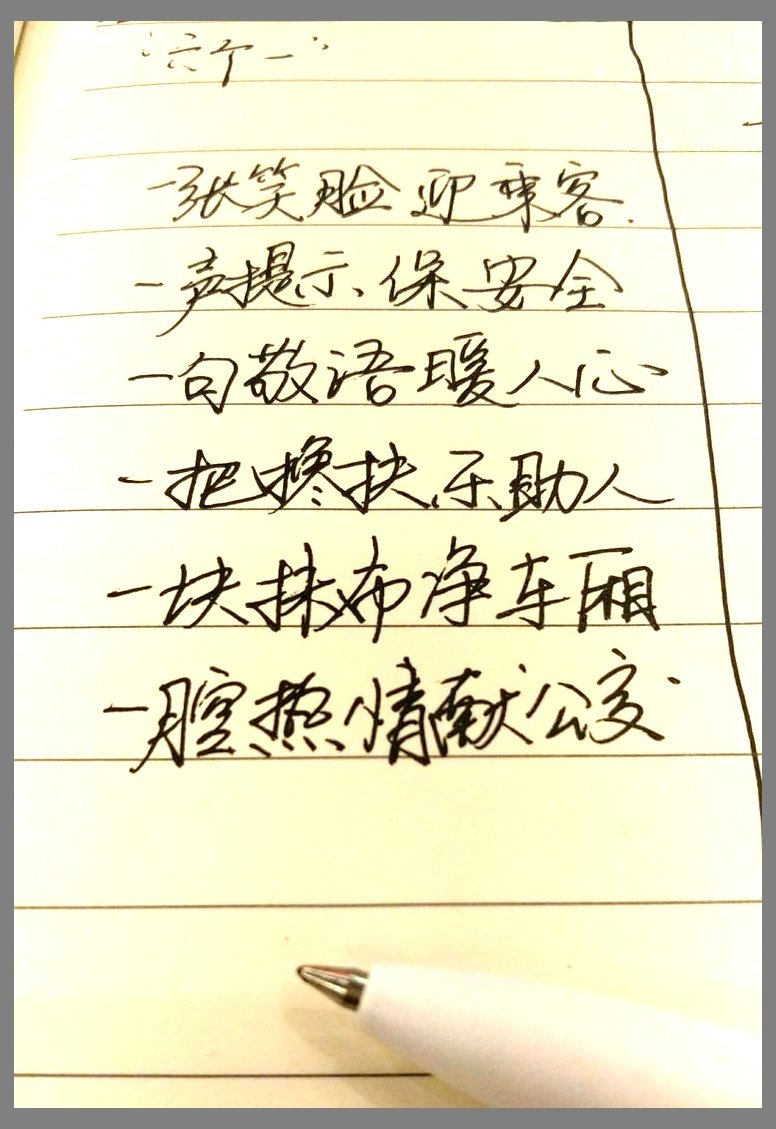 “六个一”
一张笑脸迎乘客.
一声提示、保安全
一句敬语暖人心
一把搀扶乐助人
一块抹布净车厢
一腔热情献公交